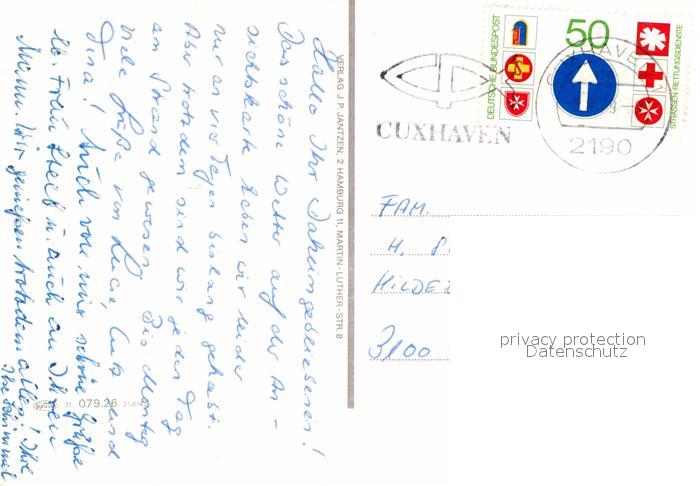 Hallo Ihr Daheimgebliebenen!
Das schöne Wetter auf der An-
sichtskarte haben wir leider
nur an vier Tagen bislang gehabt.
Aber trotzdem sind wir jeden Tag
am Strand gewesen. Bis Montag
viele Grüße von Lucie, Lutz und
Tina! Auch von mir schöne Grüße
lb. Frau u. auch an Ihren
Mann. Wir geniessen trotzdem alles! Ihre
VERLAG J. P. JANTZEN, 2 HAMBURG 11, MARTIN-LUTHER-STR. 8
Krüger 079.26
DEUTSCHE BUNDESPOST
50
STRASSEN RETTUNGSDIENSTE
CUXHAVEN
CUXHAVEN
2190
FAM.
H. P.
HILDE
3100
privacy protection
Datenschutz